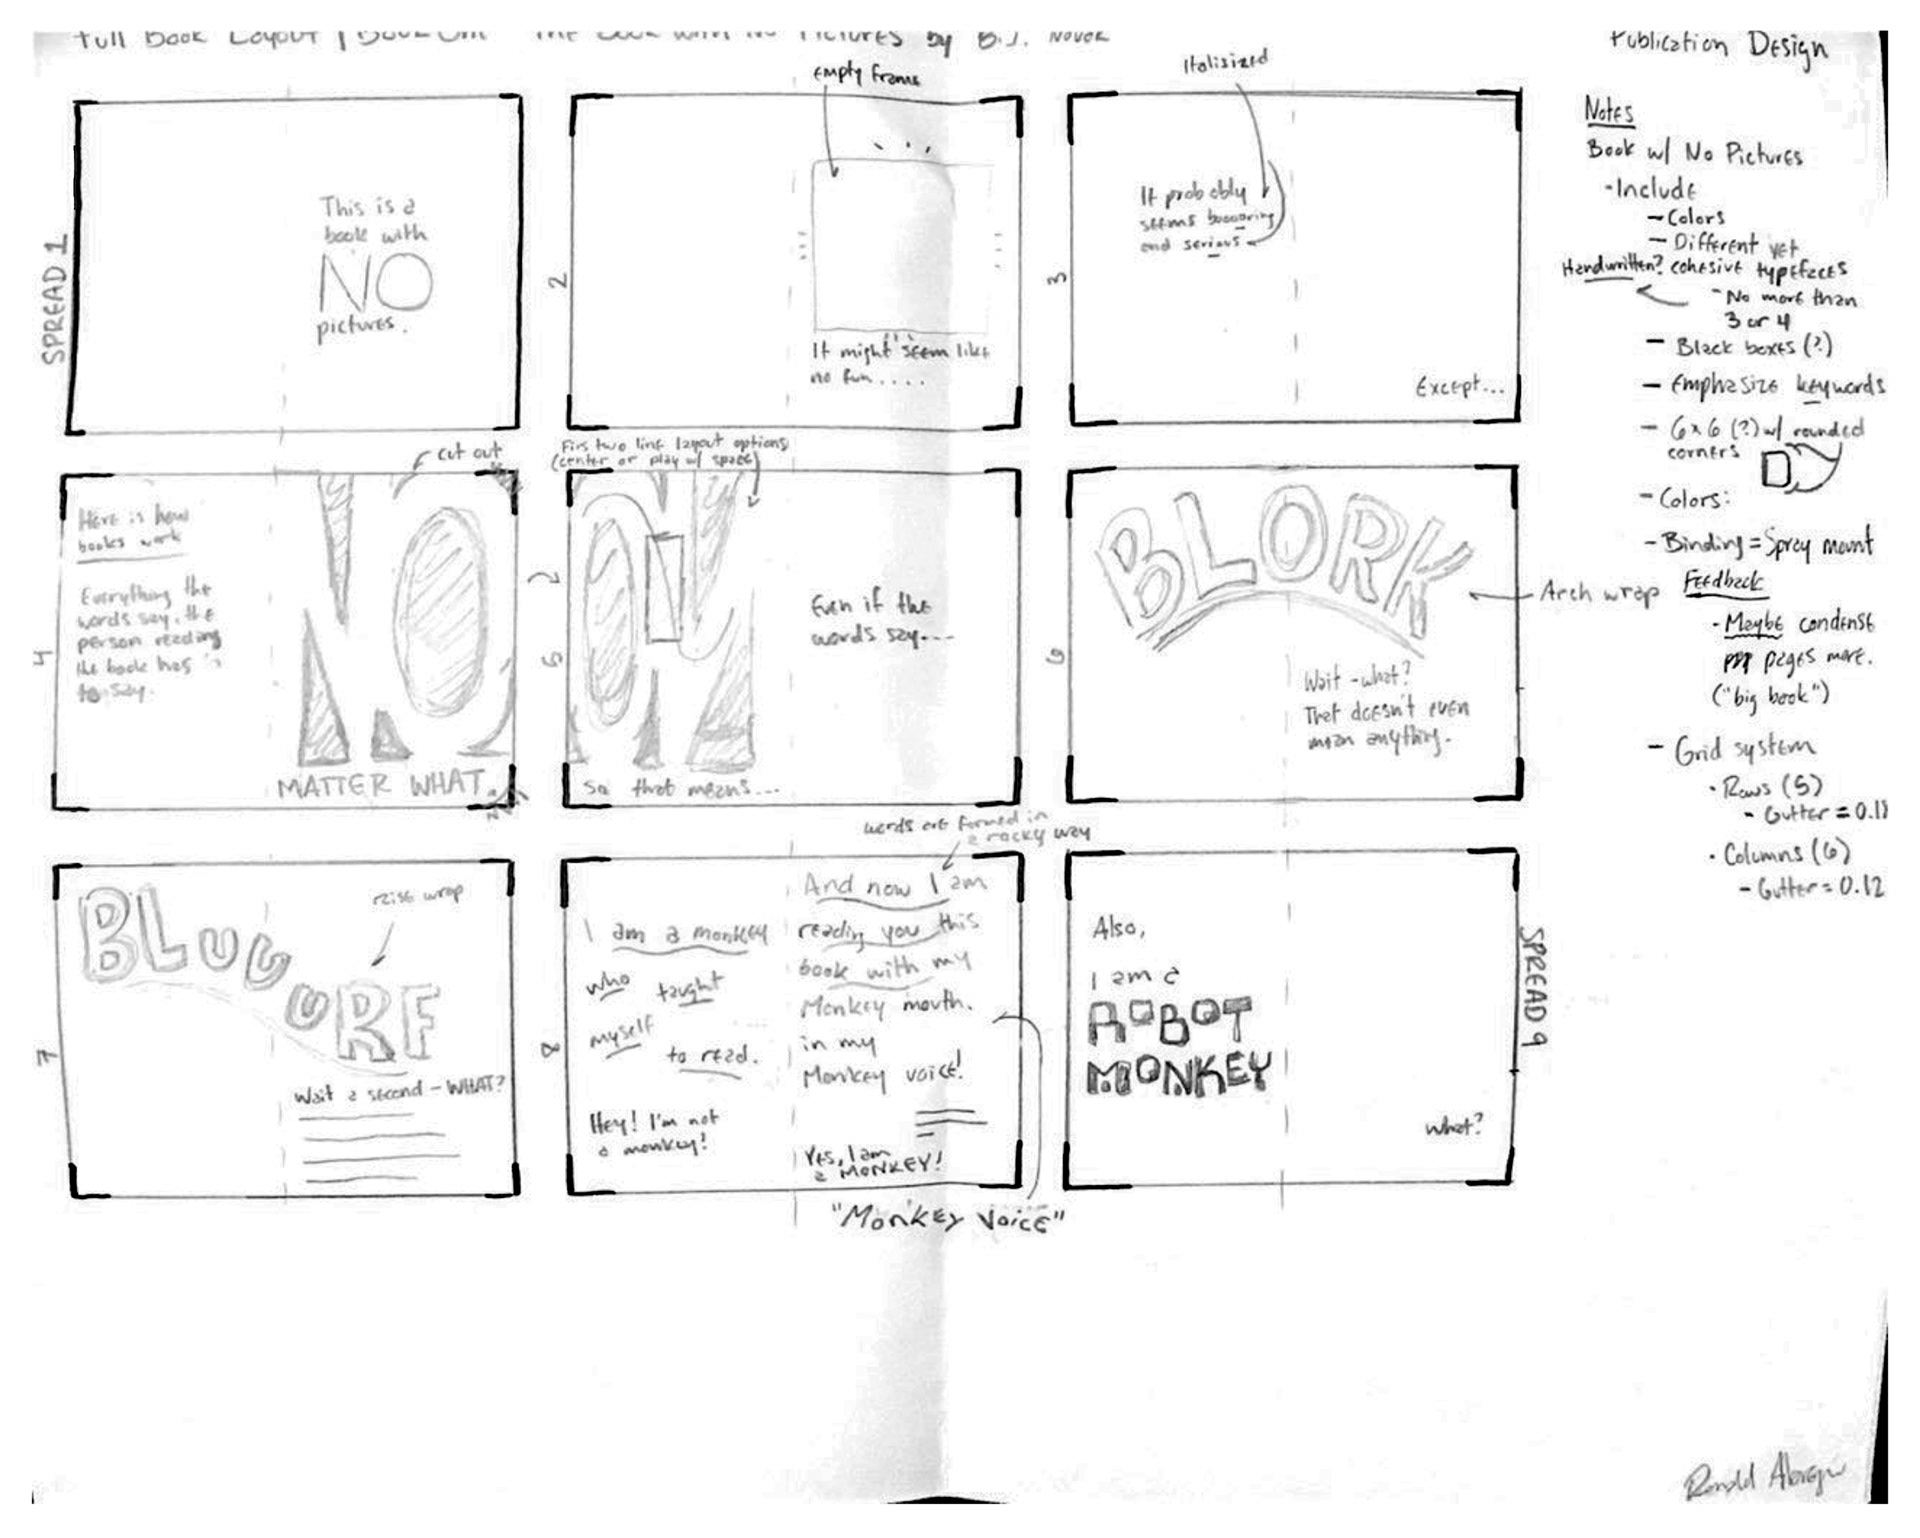 Full Book Layout | Book One The Book with No Pictures by B.J. Novak
Publication Design
SPREAD 1
This is a
book with
NO
pictures.
2
Empty frame
It might seem like
no fun....
3
Italisized
It probably
seems booooring
and serious
Except...
4
cut out
Here is how
books work
Everything the
words say, the
person reading
the book has
to say.
NO
MATTER WHAT.
5
Firs two line layout options
(center or play w/ space)
So that means...
Even if the
words say...
6
BLORK
Arch wrap
Wait - what?
That doesn't even
mean anything.
7
BLUUURF
rise wrap
Wait a second - WHAT?
8
words are formed in
a rocky way
I am a monkey
who taught
myself
to read.
Hey! I'm not
a monkey!
And now I am
reading you this
book with my
Monkey mouth.
in my
Monkey voice!
Yes, I am
a MONKEY!
"Monkey Voice"
SPREAD 9
Also,
I am a
ROBOT
MONKEY
what?
Notes
Book w/ No Pictures
- Include
- Colors
- Different yet
Handwritten? cohesive typefaces
- No more than
3 or 4
- Black boxes (?)
- Emphasize keywords
- 6x6 (?) w/ rounded
corners
- Colors:
- Binding = Spray mount
Feedback
- Maybe condense
pages more.
("big book")
- Grid system
• Rows (5)
- Gutter = 0.11
• Columns (6)
- Gutter = 0.12
Ronald